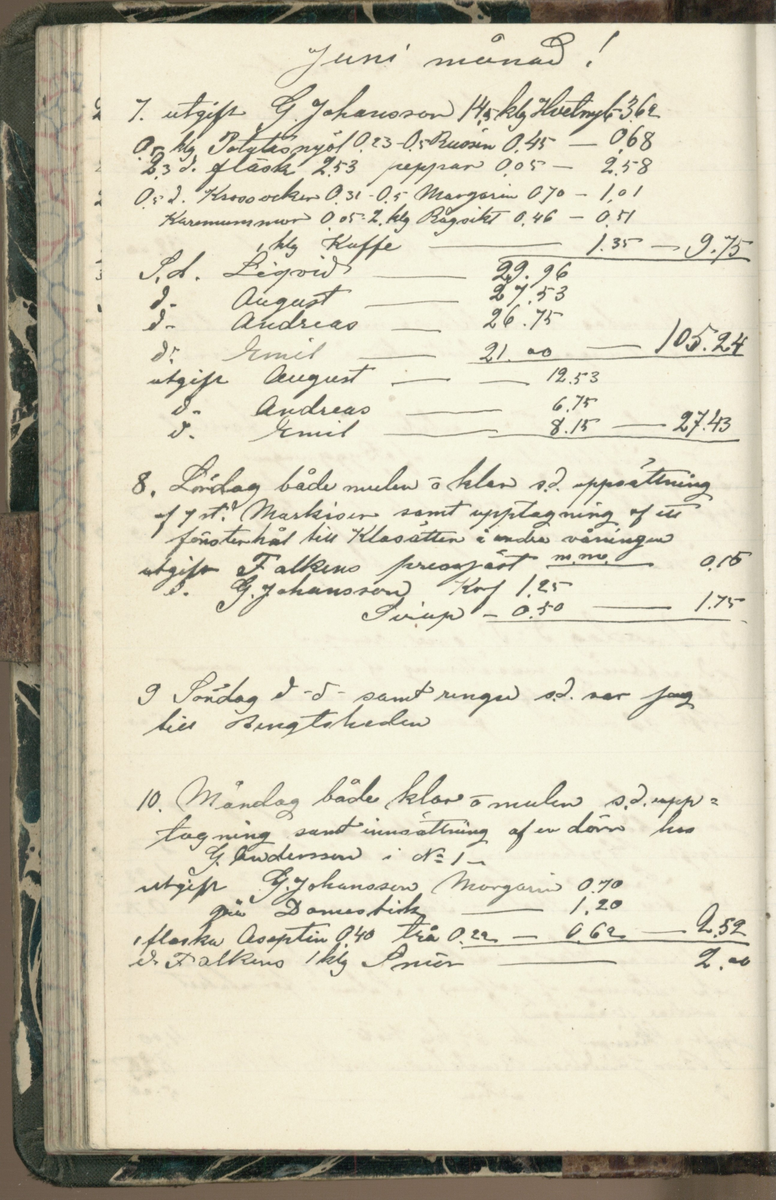 Juni månad!
7. utgift G. Johansson 14,5 klg Hvetmjöl 3.62
0,5 klg Potatismjöl 0.23 - 0,5 Russin 0.45 — 0.68
2,3 d. fläsk 2.53 peppar 0.05 — 2.58
0,5 d. Krossocker 0.31 - 0,5 Margarin 0.70 — 1.01
Karemummor 0.05 - 2 klg Rågsikt 0.46 — 0.51
1 klg Kaffe — 1.35 — 9.75
S.d. Leqvid — 29.96
d- August — 27.53
d- Andreas — 26.75
d- Emil — 21.00 — 105.24
utgift August — — 12.53
d- Andreas 6.75
d. Emil — 8.15 — 27.43
8. Lördag både mulen o klar s.d. uppsättning
af 7 st. Markiser samt upptagning af ett
fönsterhål till Klosätten i andra våningen
utgift Falkens pressjäst m.m. — 0.15
d. G. Johansson Korf 1.25
Sirap - 0.50 — 1.75
9 Söndag d - o - samt rengn s.d. var jag
till Bengtsheden
10. Måndag både klar o mulen s.d. upp=
tagning samt innsättning af en dörr hos
G. Andersson i № 1 -
utgift G. Johansson Margarin 0.70
Domestik — 1.20
1 flaska Aseptin 0.40 trå 0.22 — 0.62 — 2.52
d. Falkens 1 klg Smör — 2.00